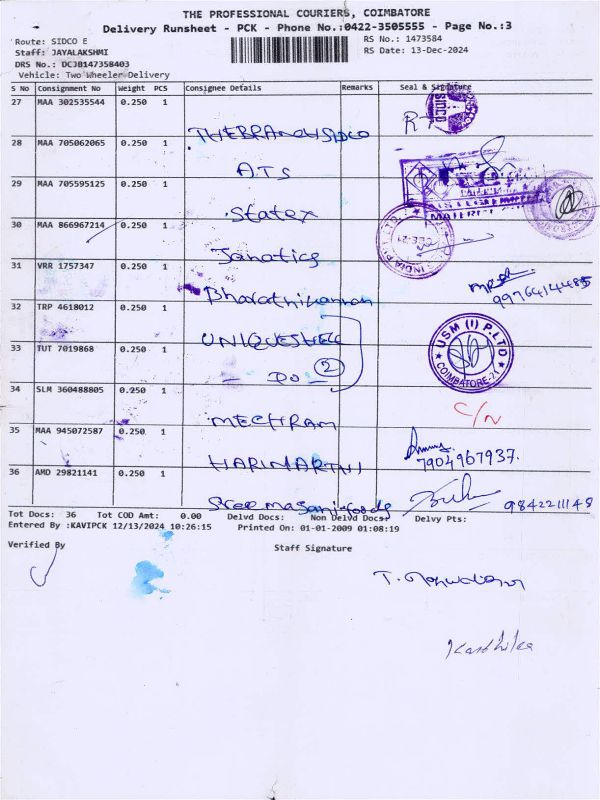 THE PROFESSIONAL COURIERS, COIMBATORE
Delivery Runsheet - PCK - Phone No.:0422-3505555 - Page No.:3
Route: SIDCO E
RS No.: 1473584
Staff: JAYALAKSHMI
RS Date: 13-Dec-2024
DRS No.: DCJB147358403
Vehicle: Two Wheeler Delivery
S No Consignment No Weight PCS Consignee Details Remarks Seal & Signature
27 MAA 302535544 0.250 1
THEBRANCHSIDCO
SIDCO
28 MAA 705062065 0.250 1
ATS
29 MAA 705595125 0.250 1
Statex
30 MAA 866967214 0.250 1
Janatics
31 VRR 1757347 0.250 1
Bharathikannan 9976414485
32 TRP 4618012 0.250 1
UNIQUESHELL
33 TUT 7019868 0.250 1
- DO - 2
USM (I) P.LTD
COIMBATORE-21
34 SLM 360488805 0.250 1
MECHRAM C/N
35 MAA 945072587 0.250 1
HARIMARTHI 7904967937.
36 AMD 29821141 0.250 1
Sree masani foods 9842211148
Tot Docs: 36 Tot COD Amt: 0.00 Delvd Docs: Non Delvd Docs: Delvy Pts:
Entered By :KAVIPCK 12/13/2024 10:26:15 Printed On: 01-01-2009 01:08:19
Verified By Staff Signature
Karthika